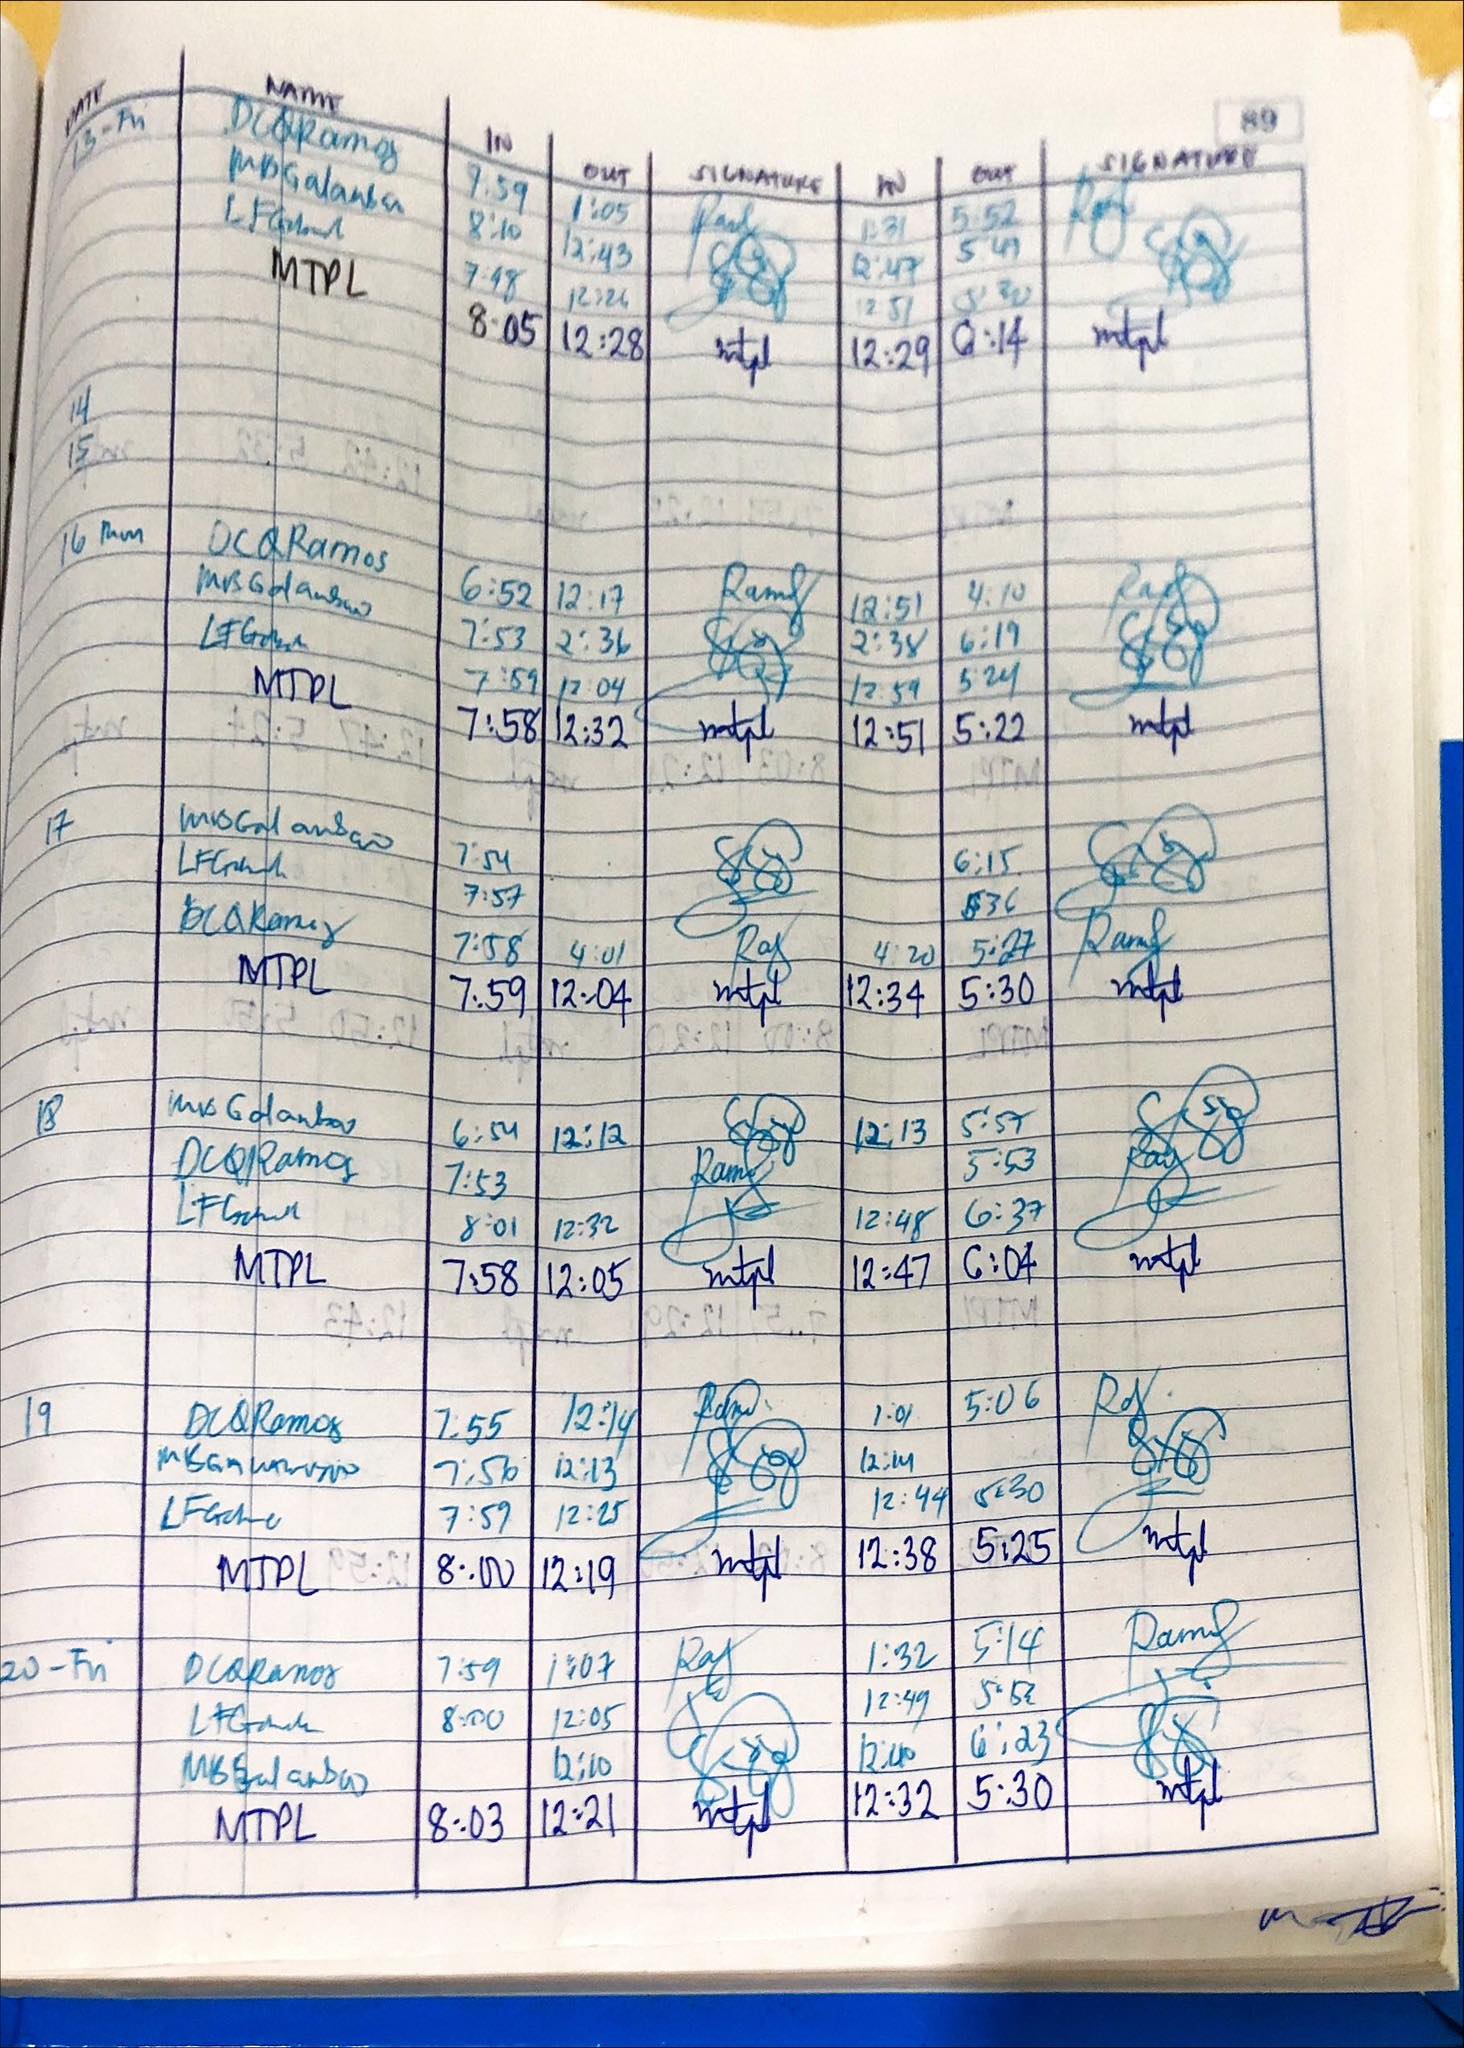 89
DATE NAME IN OUT SIGNATURE IN OUT SIGNATURE
13-Fri DCQRamos 7:59 1:05 1:31 5:52
MBGalambao 8:10 12:43 12:47 5:49
7:48 12:26 12:51 5:30
MTPL 8:05 12:28 mtpl 12:29 6:14 mtpl
14
15
16 Mon DCQRamos 6:52 12:17 Ramos 12:51 4:10
MBGalambao 7:53 2:36 2:38 6:19
7:59 12:04 12:59 5:24
MTPL 7:58 12:32 mtpl 12:51 5:22 mtpl
17 MBGalambao 7:54 6:15
7:57 5:36
DCQRamos 7:58 4:01 4:20 5:27 Ramos
MTPL 7:59 12:04 mtpl 12:34 5:30 mtpl
18 MBGalambao 6:54 12:12 12:13 5:57
DCQRamos 7:53 Ramos 5:53
8:01 12:32 12:48 6:37
MTPL 7:58 12:05 mtpl 12:47 6:04 mtpl
19 DCQRamos 7:55 12:14 1:01 5:06
7:56 12:13 12:14
7:59 12:25 12:44 5:30
MTPL 8:00 12:19 mtpl 12:38 5:25 mtpl
20-Fri DCQRamos 7:59 1:07 1:32 5:14 Ramos
8:00 12:05 12:49
MBGalambao 12:10 12:40 6:23
MTPL 8:03 12:21 mtpl 12:32 5:30 mtpl